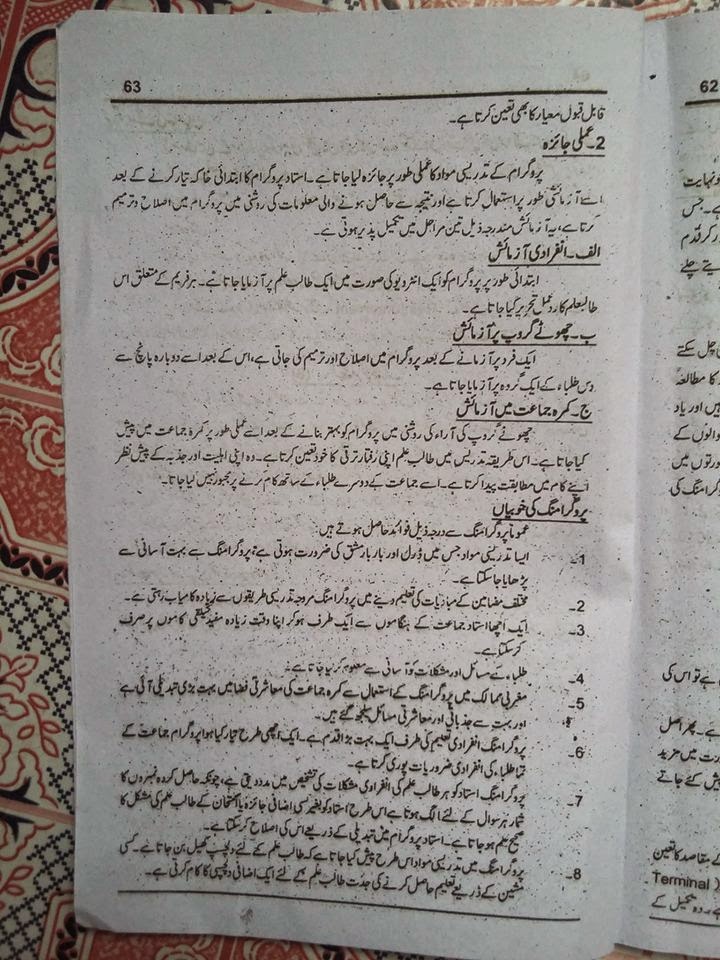 63
قابل قبول معیار کا بھی تعین کرتا ہے۔
2۔ عملی جائزہ
پروگرام کے تدریسی مواد کا عملی طور پر جائزہ لیا جاتا ہے۔ استاد پروگرام کا ابتدائی خاکہ تیار کرنے کے بعد
اسے آزمائشی طور پر استعمال کرتا ہے اور نتیجہ سے حاصل ہونے والی معلومات کی روشنی میں پروگرام میں اصلاح و ترمیم
کرتا ہے، یہ آزمائش مندرجہ ذیل تین مراحل میں تکمیل پذیر ہوتی ہے۔
الف۔ انفرادی آزمائش
ابتدائی طور پر پروگرام کو ایک انٹرویو کی صورت میں ایک طالب علم پر آزمایا جاتا ہے۔ ہر فریم کے متعلق اس
طالبعلم کا ردعمل تحریر کیا جاتا ہے۔
ب۔ چھوٹے گروپ پر آزمائش
ایک فرد پر آزمانے کے بعد پروگرام میں اصلاح اور ترمیم کی جاتی ہے، اس کے بعد اسے دوبارہ پانچ سے
دس طلباء کے ایک گروہ پر آزمایا جاتا ہے۔
ج۔ کمرہ جماعت میں آزمائش
چھوٹے گروپ کی آراء کی روشنی میں پروگرام کو بہتر بنانے کے بعد اسے عملی طور پر کمرہ جماعت میں پیش
کیا جاتا ہے۔ اس طریقہ تدریس میں طالب علم اپنی رفتار ترقی کا خود تعین کرتا ہے۔ وہ اپنی اہلیت اور جذبہ کے پیش نظر
اپنے کام میں مطابقت پیدا کرتا ہے۔ اسے جماعت کے دوسرے طلباء کے ساتھ کام کرنے پر مجبور نہیں کیا جاتا۔
پروگرامنگ کی خوبیاں
عموماً پروگرامنگ سے درج ذیل فوائد حاصل ہوتے ہیں:
1۔ ایسا تدریسی مواد جس میں ڈرل اور بار بار مشق کی ضرورت ہوتی ہے، پروگرامنگ سے بہت آسانی سے
پڑھایا جا سکتا ہے۔
2۔ مختلف مضامین کے مبادیات کی تعلیم دینے میں پروگرامنگ مروجہ تدریسی طریقوں سے زیادہ کامیاب رہتی ہے۔
3۔ ایک اچھا استاد جماعت کے ہنگاموں سے ایک طرف ہو کر اپنا وقت زیادہ مفید تخلیقی کاموں پر صرف
کر سکتا ہے۔
4۔ طلباء کے مسائل اور مشکلات کو آسانی سے معلوم کر لیا جاتا ہے۔
5۔ مغربی ممالک میں پروگرامنگ کے استعمال سے کمرہ جماعت کی معاشرتی فضا میں بہت بڑی تبدیلی آئی ہے
اور بہت سے جذباتی اور معاشرتی مسائل سلجھ گئے ہیں۔
6۔ پروگرامنگ انفرادی تعلیم کی طرف ایک بہت بڑا قدم ہے۔ ایک اچھی طرح تیار کیا ہوا پروگرام جماعت کے
تمام طلباء کی انفرادی ضروریات پوری کرتا ہے۔
7۔ پروگرامنگ استاد کو ہر طالب علم کی انفرادی مشکلات کی تشخیص میں مدد دیتی ہے، چونکہ حاصل کردہ نمبروں کا
شمار ہر سوال کے لئے الگ ہوتا ہے اس طرح استاد کو بغیر کسی اضافی جائزہ یا امتحان کے طالب علم کی مشکل کا
صحیح علم ہو جاتا ہے۔ استاد پروگرام میں تبدیلی کے ذریعے اس کی اصلاح کر سکتا ہے۔
8۔ پروگرامنگ میں تدریسی مواد اس طرح پیش کیا جاتا ہے کہ طالب علم کے لئے دلچسپ کھیل بن جاتا ہے۔ کسی
مشین کے ذریعے تعلیم حاصل کرنے کی جدت طالب علم کے لئے ایک اضافی دلچسپی کا کام کرتی ہے۔
62
نہایت
ہے۔ جس
کر قدم
چل سکتے
کا مطالعہ
ہیں اور یاد
والوں کے
صورتوں میں
ہے تو اس کی
ہے۔ پھر اصل
میں مزید
پیش کئے جاتے
کے مقاصد کا تعین
Terminal )